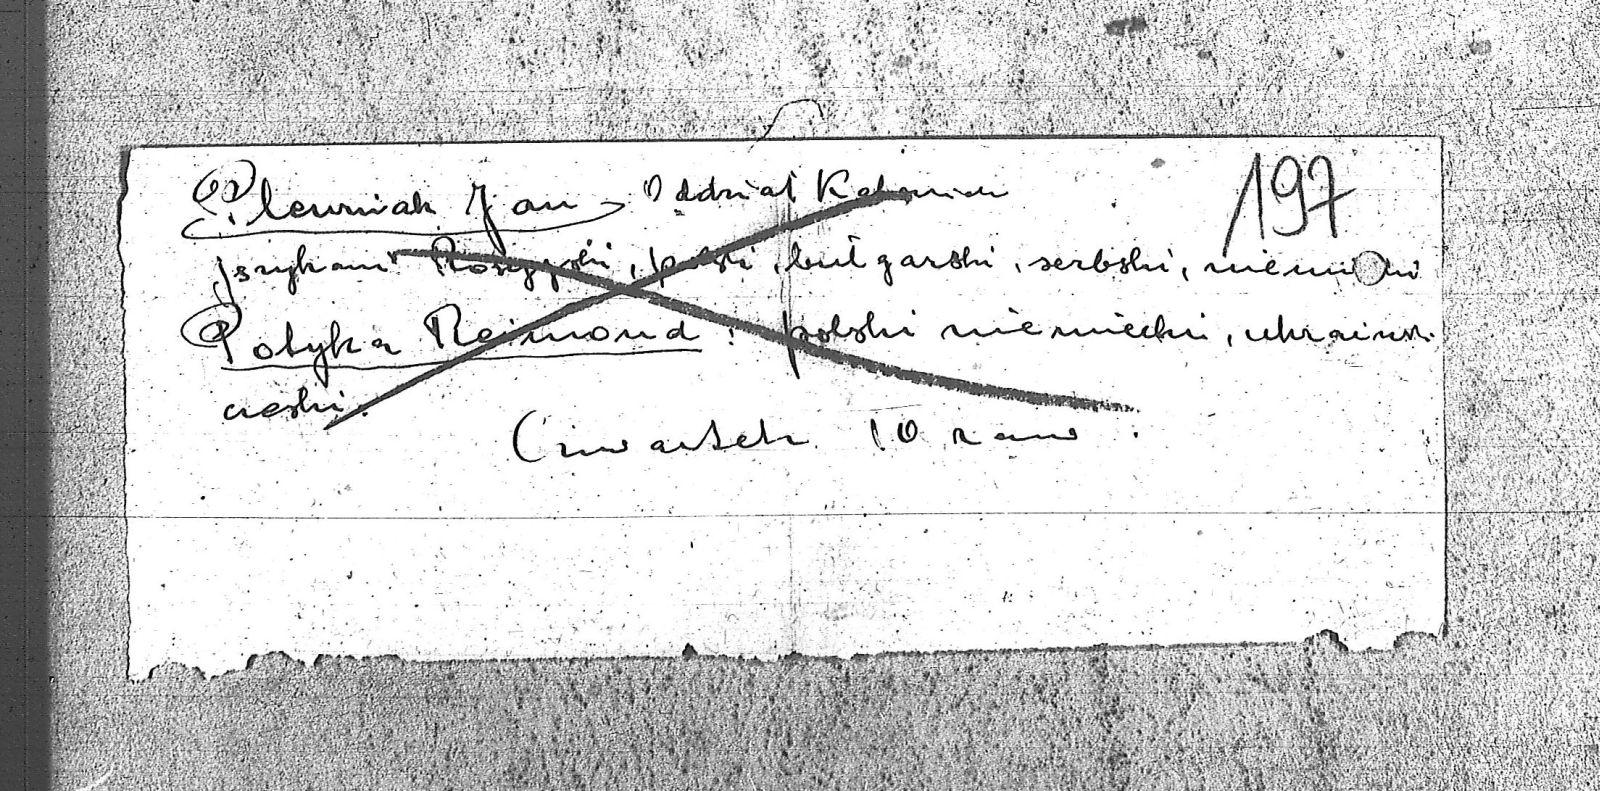 Plewniak Jan Oddział 197
językami Rosyjski, polski, bułgarski, serbski, niemiecki
Potyka Reimond: polski niemiecki, ukraiński
czeski.
Czwartek 10 rano.